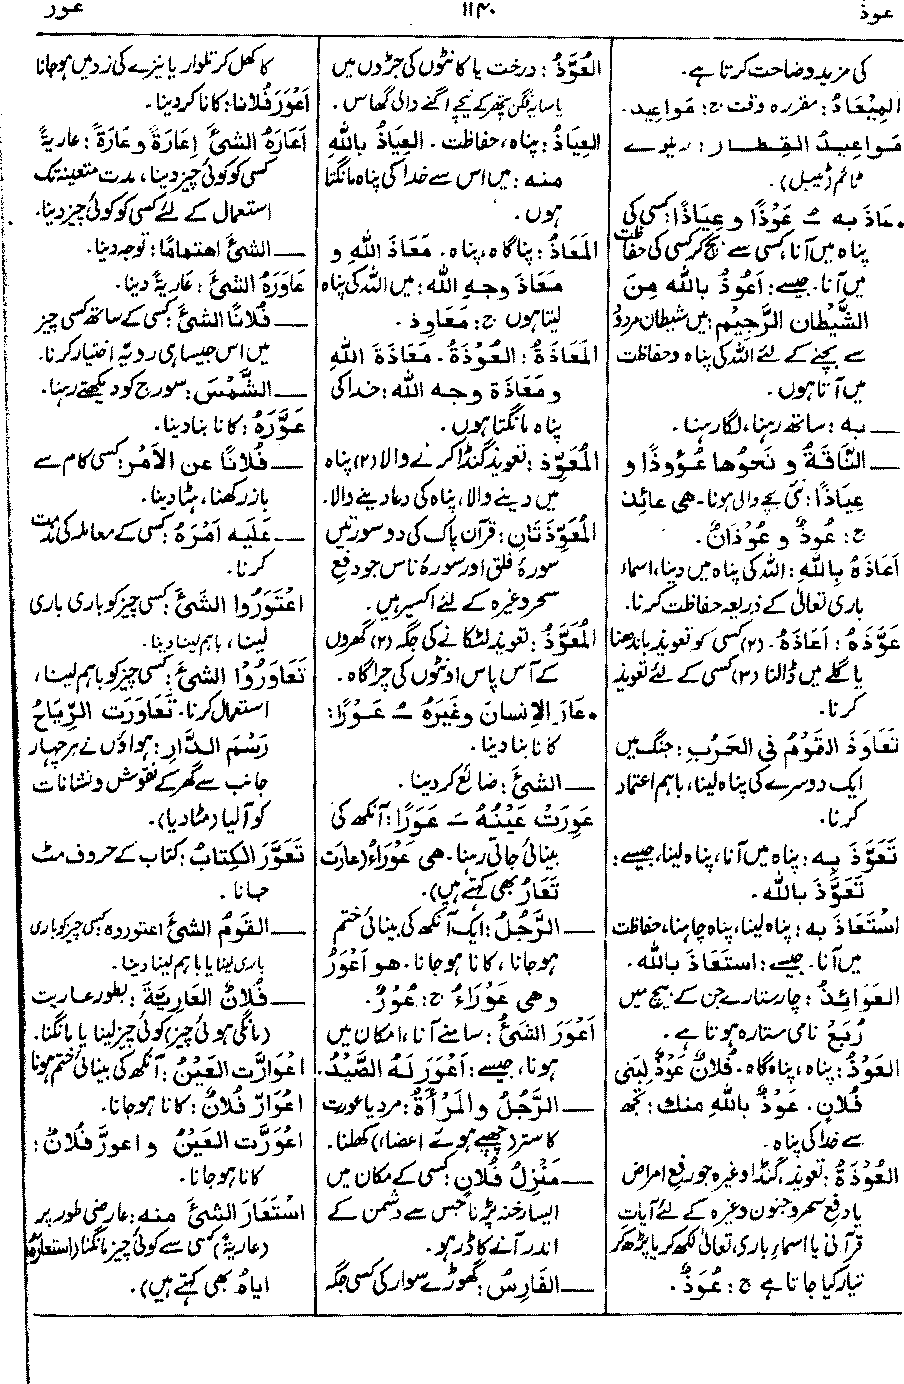 عوذ
۱۱۴۰
عور
کی مزید وضاحت کرتا ہے۔
المِیْعَادُ: مقررہ وقت ج: مَوَاعِید۔
مَوَاعِیدُ القِطَار: ریلوے
ٹائم ٹیبل)۔
• عَاذَ بِہ ـُ عَوْذًا و عِیَاذًا: کسی کی
پناہ میں آنا، کسی سے بچ کر کسی کی حفاظت
میں آنا۔ جیسے: اَعُوذُ بِاللہ مِنَ
الشَّیْطَانِ الرَّجِیْم: میں شیطان مردود
سے بچنے کے لئے اللہ کی پناہ وحفاظت
میں آتا ہوں۔
ــ بہ: ساتھ رہنا، لگا رہنا۔
ــ النَّاقَۃُ و نَحوُھا عُؤُوذًا و
عِیَاذًا: نئی بچے والی ہونا۔ ھی عائِذ
ج: عُوذٌ و عُوْذَانٌ۔
اَعَاذَہُ بِاللہِ: اللہ کی پناہ میں دینا، اسماء
باری تعالیٰ کے ذریعہ حفاظت کرنا۔
عَوَّذَہُ: اَعَاذَہُ۔ (۲) کسی کو تعویذ باندھنا
یا گلے میں ڈالنا (۳) کسی کے لئے تعویذ
کرنا۔
تَعَاوَذَ القَوْمُ فی الحَرْبِ: جنگ میں
ایک دوسرے کی پناہ لینا، باہم اعتماد
کرنا۔
تَعَوَّذَ بِہ: پناہ میں آنا، پناہ لینا، جیسے:
تَعَوَّذَ بِاللہ۔
اسْتَعَاذَ بہ: پناہ لینا، پناہ چاہنا، حفاظت
میں آنا۔ جیسے: اسْتَعَاذَ بِاللہ۔
العَوَائِذُ: چار ستارے جن کے بیچ میں
رُبَعْ نامی ستارہ ہوتا ہے۔
العَوْذُ: پناہ، پناہ گاہ۔ فُلَانٌ عَوْذٌ لِبَنِی
فُلَانٍ۔ عَوْذٌ بِاللہِ منك: تجھ
سے خدا کی پناہ۔
العُوْذَۃُ: تعویذ، گنڈا وغیرہ جو رفع امراض
یا دفع سحر و جنون وغیرہ کے لئے آیات
قرآنی یا اسماء باری تعالیٰ لکھ کر یا پڑھ کر
تیار کیا جاتا ہے ج: عُوَذٌ۔
العُوَّذُ: درخت یا کانٹوں کی جڑوں میں
یا سایہ فگن پتھر کے نیچے اگنے والی گھاس۔
العِیَاذُ: پناہ، حفاظت۔ العِیَاذُ بِاللہِ
منہ: میں اس سے خدا کی پناہ مانگتا
ہوں۔
المَعَاذُ: پناگاہ، پناہ۔ مَعَاذَ اللہِ و
مَعَاذَ وجہِ اللہ: میں اللہ کی پناہ
لیتا ہوں ج: مَعَاوِذ۔
المَعَاذَۃُ: العُوْذَۃُ۔ مَعَاذَۃَ اللہِ
و مَعَاذَۃ وجہ اللہ: خدا کی
پناہ مانگتا ہوں۔
المُعَوِّذ: تعویذ گنڈا کرنے والا (۲) پناہ
میں دینے والا، پناہ کی دعا دینے والا۔
المُعَوِّذَتَانِ: قرآن پاک کی دو سورتیں
سورۂ فلق اور سورۂ ناس جو دفع
سحر وغیرہ کے لئے اکسیر ہیں۔
المُعَوَّذُ: تعویذ لٹکانے کی جگہ (۲) گھروں
کے آس پاس اونٹوں کی چراگاہ۔
• عَارَ الاِنسانَ وغَیرَہُ ـُ عَوْرًا:
کانا بنا دینا۔
ــ الشیَٔ: ضائع کر دینا۔
عَوِرَتْ عَیْنُہُ ـَ عَوَرًا: آنکھ کی
بینائی جاتی رہنا۔ ھی عَوْرَاءُ (عارَت
تَعَارُ بھی کہتے ہیں)۔
ــ الرَّجُلُ: ایک آنکھ کی بینائی ختم
ہو جانا، کانا ہو جانا۔ ھو اَعْوَرُ
وھی عَوْرَاءُ ج: عُوْرٌ۔
اَعْوَرَ الشَیُٔ: سامنے آنا، امکان میں
ہونا، جیسے: اَعْوَرَ لَہُ الصَّیْدُ۔
ــ الرَّجُلُ والمَرْأۃُ: مرد یا عورت
کا ستر (چھپے ہوئے اعضاء) کھلنا۔
ــ مَنْزِلُ فُلَانٍ: کسی کے مکان میں
ایسا رخنہ پڑنا جس سے دشمن کے
اندر آنے کا ڈر ہو۔
ــ الفَارِسُ: گھوڑے سوار کی کسی جگہ
کا کھل کر تلوار یا نیزے کی زد میں ہو جانا
اَعْوَرَ فُلَانًا: کانا کر دینا۔
اَعَارَہُ الشیَٔ اِعَارَۃً و عَارَۃً: عاریۃً
کسی کو کوئی چیز دینا، مدت متعینہ تک
استعمال کے لئے کسی کو کوئی چیز دینا۔
ــ الشیَٔ اھتمامًا: توجہ دینا۔
عَاوَرَہُ الشیَٔ: عاریۃً دینا۔
ــ فُلَانًا الشیَٔ: کسی کے ساتھ کسی چیز
میں اس جیسا ہی رویہ اختیار کرنا۔
ــ الشَّمْسَ: سورج کو دیکھتے رہنا۔
عَوَّرَہُ: کانا بنا دینا۔
ــ فُلَانًا عن الاَمْرِ: کسی کام سے
باز رکھنا، ہٹا دینا۔
ــ عَلَیہ اَمْرَہُ: کسی کے معاملہ کی مذمت
کرنا۔
اعْتَوَرُوا الشَیَٔ: کسی چیز کو باری باری
لینا، باہم لینا دینا۔
تَعَاوَرُوْا الشیَٔ: کسی چیز کو باہم لینا،
استعمال کرنا۔ تَعَاوَرَت الرِّیَاحُ
رَسْمَ الدَّارِ: ہواؤں نے ہر چہار
جانب سے گھر کے نقوش و نشانات
کو آلیا (مٹا دیا)۔
تَعَوَّرَ الکِتَابُ: کتاب کے حروف مٹ
جانا۔
ــ القَومُ الشیَٔ اعتوروہ: کسی چیز کو باری
باری لینا یا باہم لینا دینا۔
ــ فُلَانٌ العَارِیَۃَ: بطور عاریت
(مانگی ہوئی چیز) کوئی چیز لینا یا مانگنا۔
اعْوَارَّت العَیْنُ: آنکھ کی بینائی ختم ہونا
اعْوَارَّ فُلَانٌ: کانا ہو جانا۔
اعْوَرَّت العَیْنُ و اعورَّ فُلَانٌ:
کانا ہو جانا۔
اسْتَعَارَ الشَیَٔ منہ: عارضی طور پر
(عاریۃً) کسی سے کوئی چیز مانگنا (استعارَہُ
ایاہُ بھی کہتے ہیں)۔